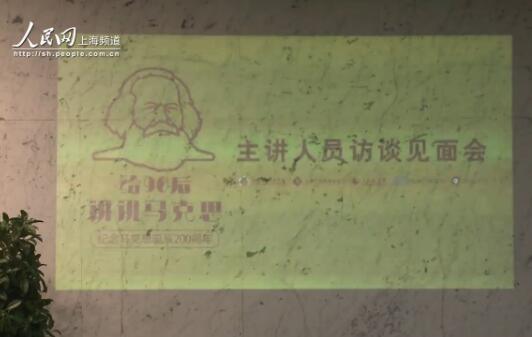 人民网 上海频道
http://sh.people.com.cn
给90后
讲讲马克思
纪念马克思诞辰200周年
主讲人员访谈见面会